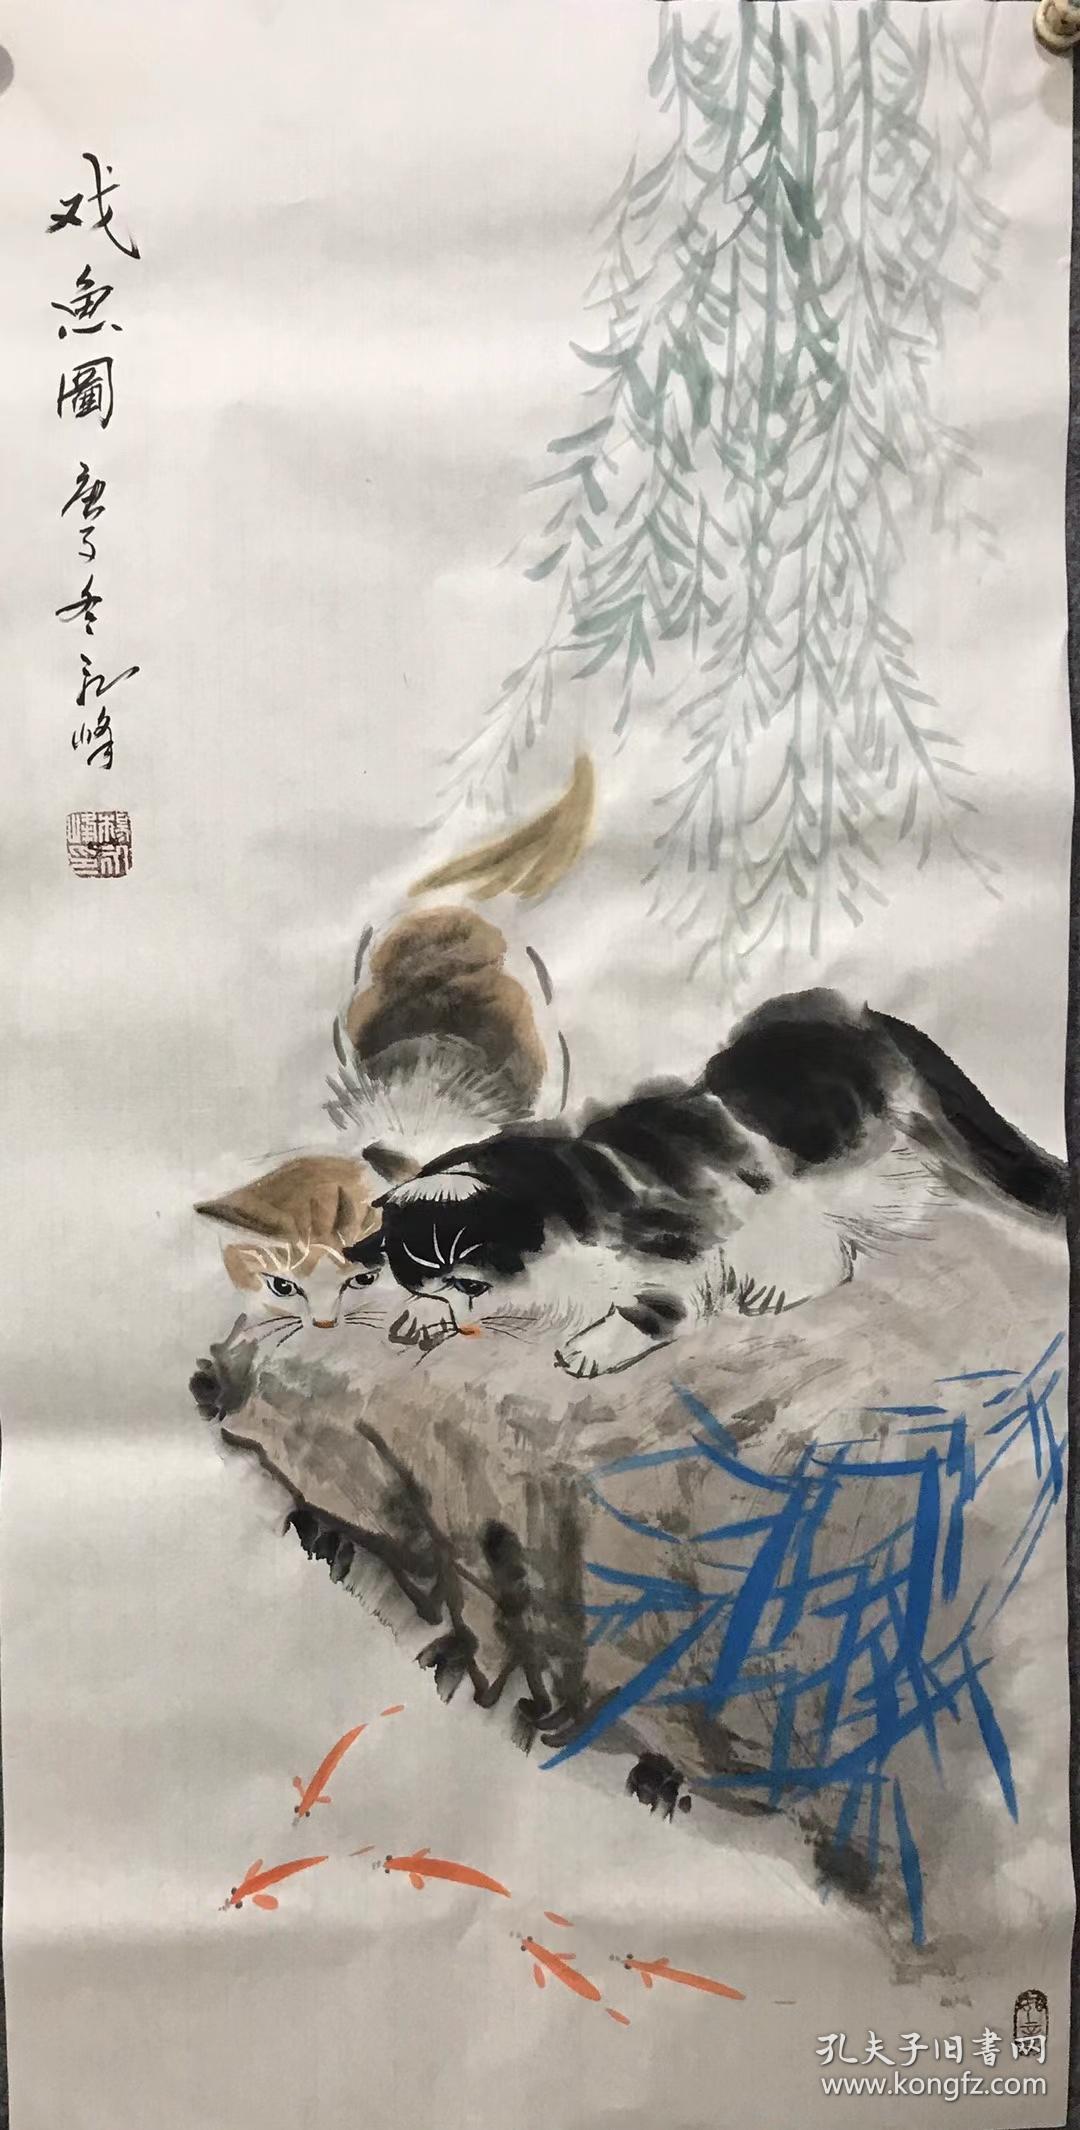 戏鱼圖
庚子冬永峰
孔夫子旧書网
www.kongfz.com